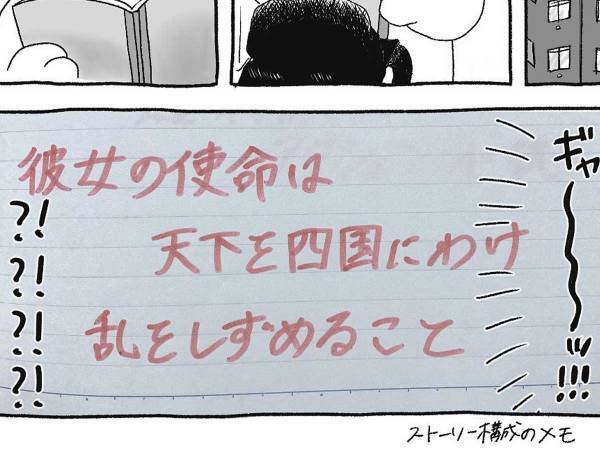 ギャ〜〜〜ッ!!!
彼女の使命は
天下を四国にわけ
乱をしずめること
?!?!?!?!
ストーリー構成のメモ